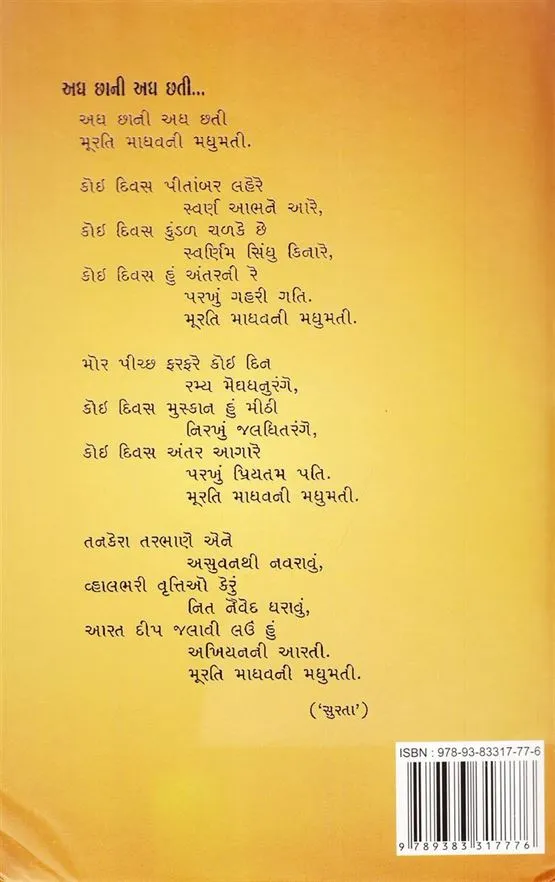 અધ છાની અધ છતી...
અધ છાની અધ છતી
મૂરતિ માધવની મધુમતી.
કોઇ દિવસ પીતાંબર લહેરે
સ્વર્ણ આભને આરે,
કોઇ દિવસ કુંડળ ચળકે છે
સ્વર્ણિમ સિંધુ કિનારે,
કોઇ દિવસ હું અંતરની રે
પરખું ગહરી ગતિ.
મૂરતિ માધવની મધુમતી.
મોર પીચ્છ ફરફરે કોઇ દિન
રમ્ય મેઘધનુરંગે,
કોઇ દિવસ મુસ્કાન હું મીઠી
નિરખું જલધિતરંગે,
કોઇ દિવસ અંતર આગારે
પરખું પ્રિયતમ પતિ.
મૂરતિ માધવની મધુમતી.
તનકેરા તરભાણે એને
અસુવનથી નવરાવું,
વ્હાલભરી વૃત્તિઓ કેરું
નિત નૈવેદ ધરાવું,
આરત દીપ જલાવી લઉં હું
અખિયનની આરતી.
મૂરતિ માધવની મધુમતી.
('સુરતા')
ISBN : 978-93-83317-77-6
9 789383 317776